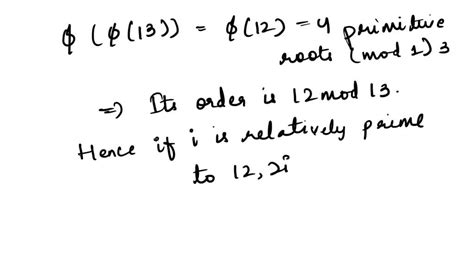 ϕ (ϕ(13)) = ϕ(12) = 4 primitive
roots (mod 1) 3
=> Its order is 12 mod 13.
Hence if i is relatively prime
to 12, 2i